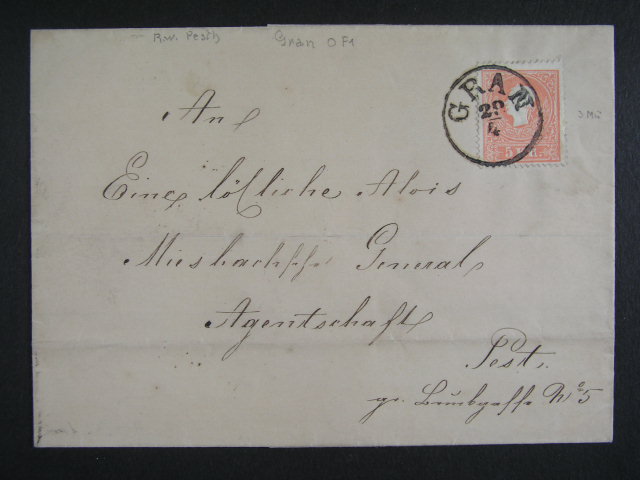 R.w. Pesth
Gran O P1
GRAN
29/4
5 Kr.
3 Mü
An
Eine löbliche Alois
Miesbach'sche General
Agentschaft
Pest.
gr. No 5